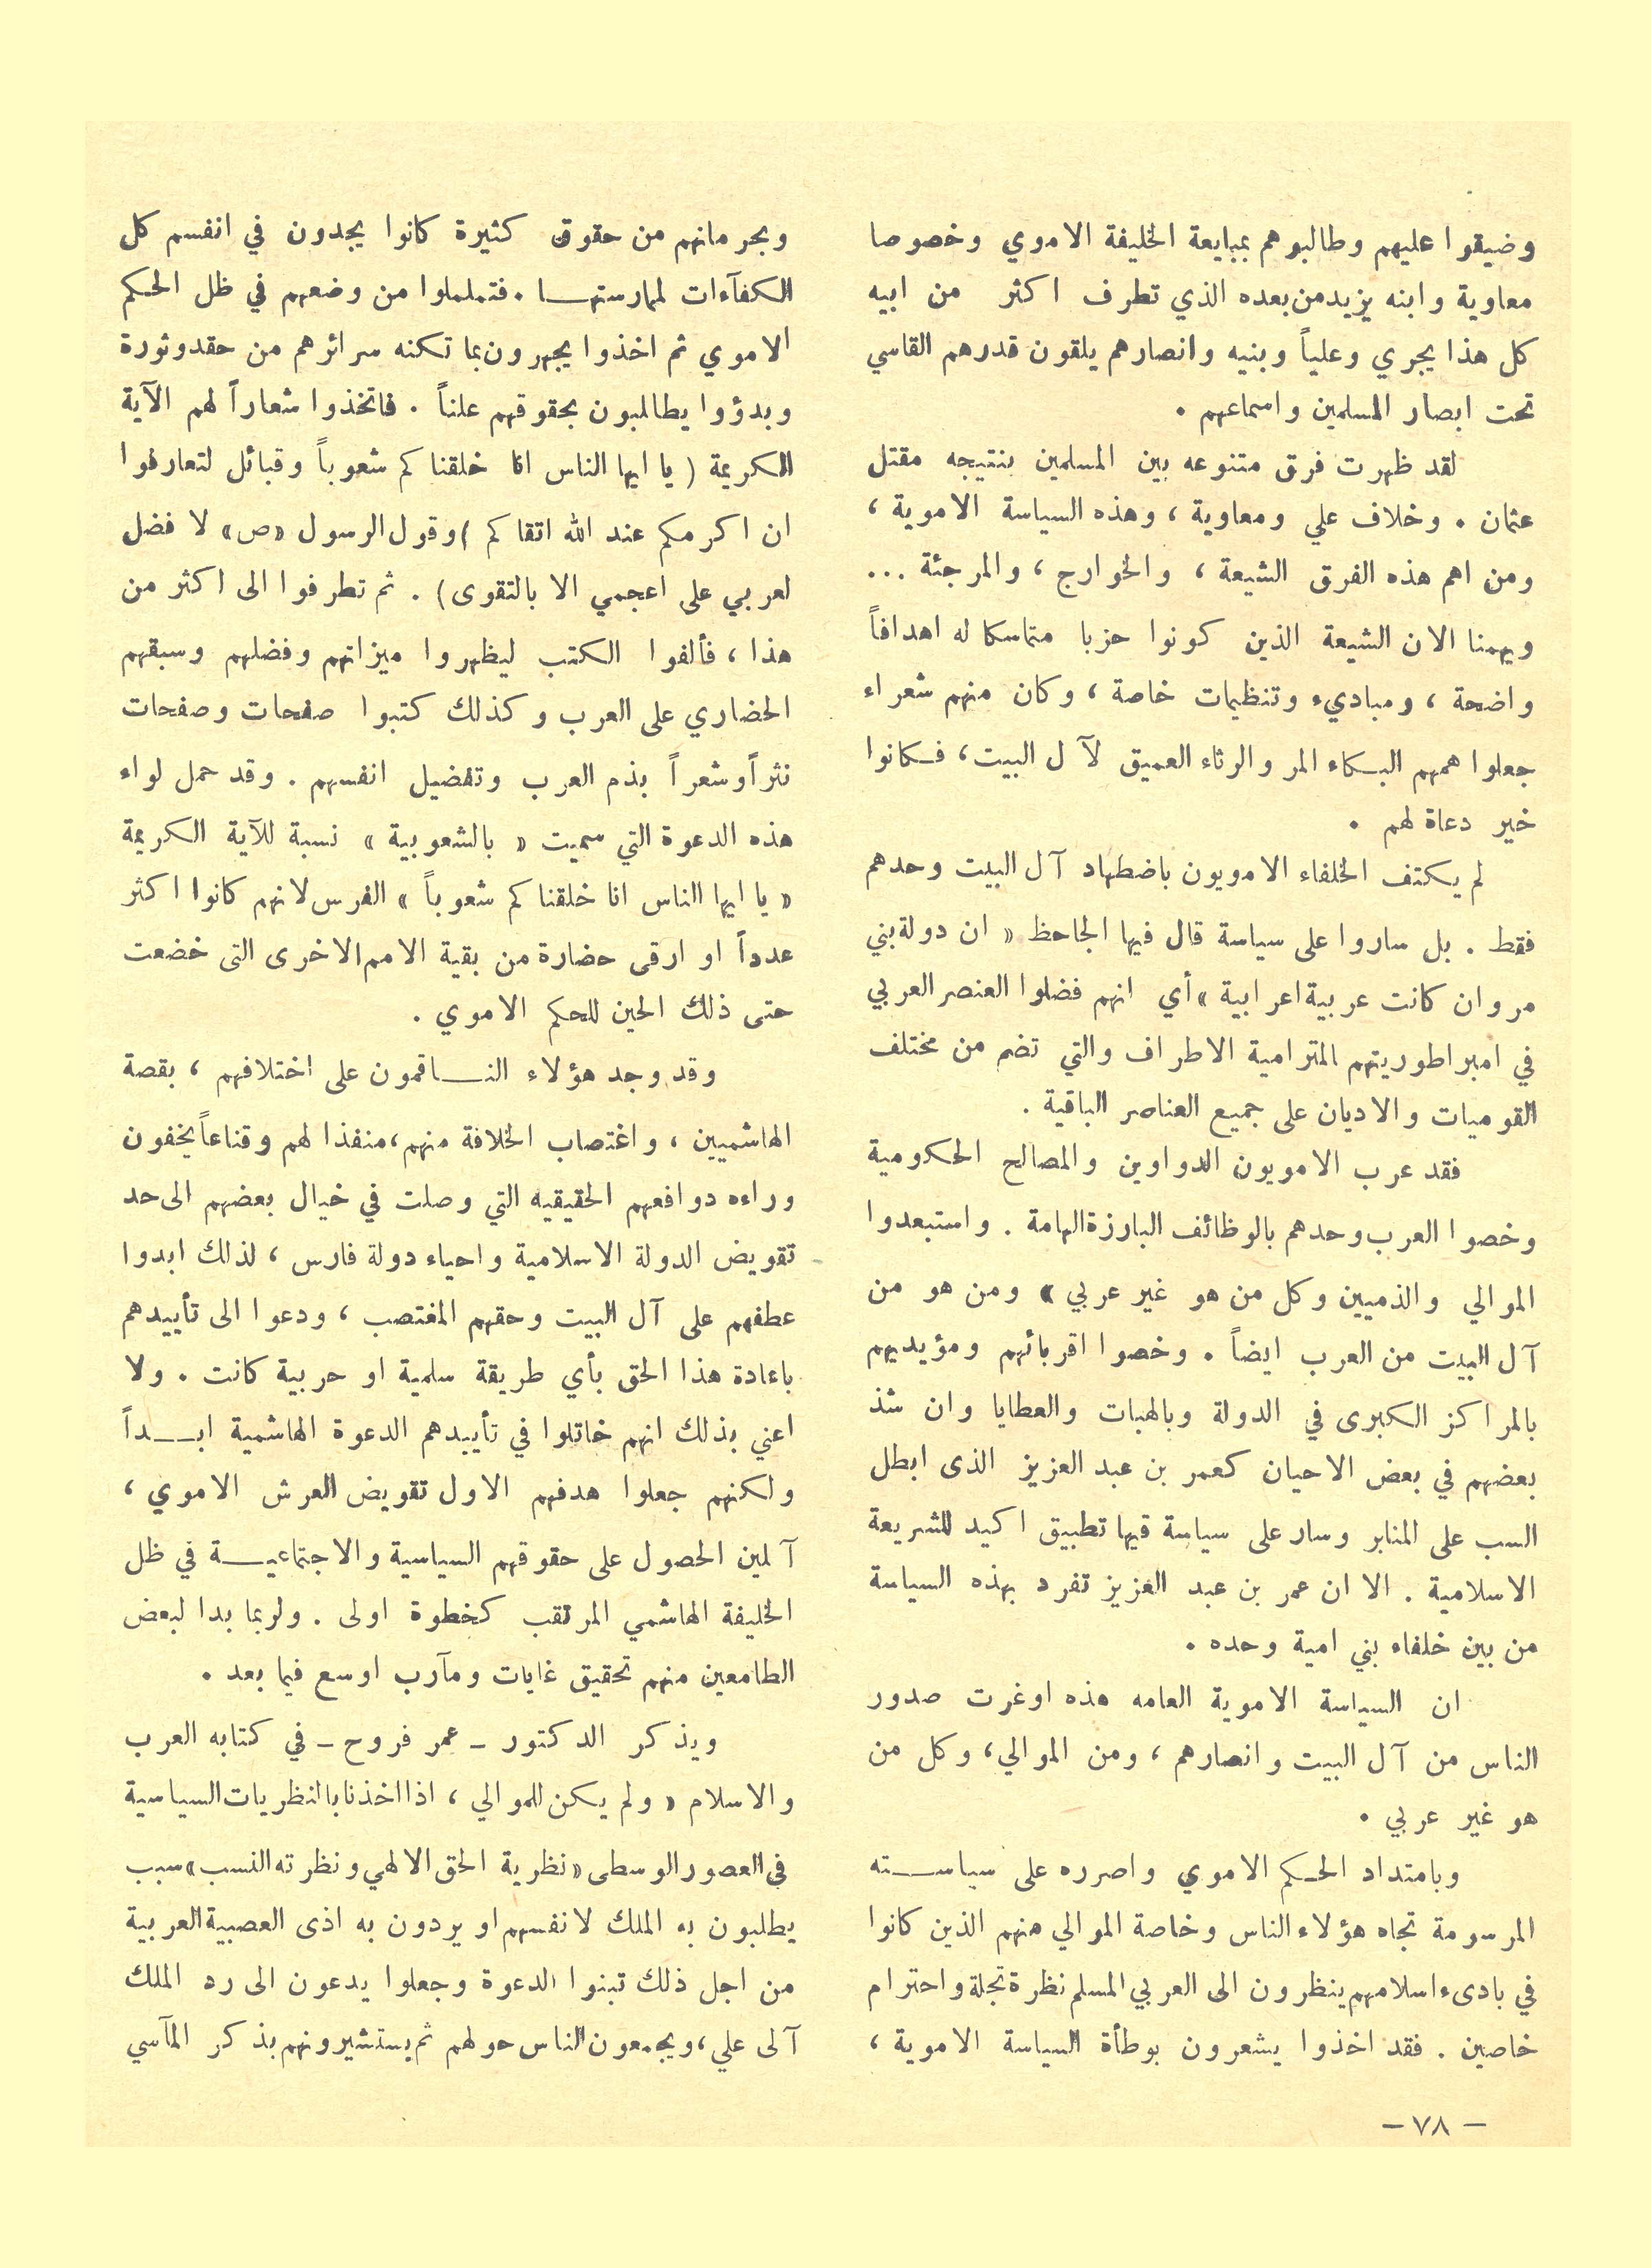 وضيقوا عليهم وطالبوهم بمبايعة الخليفة الاموي وخصوصا
معاوية وابنه يزيد من بعده الذي تطرف اكثر من ابيه
كل هذا يجري وعلياً وبنيه وانصارهم يلقون قدرهم القاسي
تحت ابصار المسلمين واسماعهم .
لقد ظهرت فرق متنوعه بين المسلمين بنتيجه مقتل
عثمان . وخلاف علي ومعاوية ، وهذه السياسة الاموية ،
ومن اهم هذه الفرق الشيعة ، والخوارج ، والمرجئة ...
ويهمنا الان الشيعة الذين كونوا حزبا متماسكا له اهدافاً
واضحة ، ومباديء وتنظيمات خاصة ، وكان منهم شعراء
جعلوا همهم البكاء المر والرثاء العميق لآل البيت ، فكانوا
خير دعاة لهم .
لم يكتف الخلفاء الامويون باضطهاد آل البيت وحدهم
فقط . بل ساروا على سياسة قال فيها الجاحظ « ان دولة بني
مروان كانت عربية اعرابية » أي انهم فضلوا العنصر العربي
في امبراطوريتهم المترامية الاطراف والتي تضم من مختلف
القوميات والاديان على جميع العناصر الباقية .
فقد عرب الامويون الدواوين والمصالح الحكومية
وخصوا العرب وحدهم بالوظائف البارزة الهامة . واستبعدوا
الموالي والذميين وكل من هو غير عربي » ومن هو من
آل البيت من العرب ايضاً . وخصوا اقربائهم ومؤيديهم
بالمراكز الكبرى في الدولة وبالهبات والعطايا وان شذ
بعضهم في بعض الاحيان كعمر بن عبد العزيز الذى ابطل
السب على المنابر وسار على سياسة فيها تطبيق اكيد للشريعة
الاسلامية . الا ان عمر بن عبد العزيز تفرد بهذه السياسة
من بين خلفاء بني امية وحده .
ان السياسة الاموية العامه هذه اوغرت صدور
الناس من آل البيت وانصارهم ، ومن الموالي ، وكل من
هو غير عربي .
وبامتداد الحكم الاموي واصرره على سياسته
المرسومة تجاه هؤلاء الناس وخاصة الموالي منهم الذين كانوا
في بادىء اسلامهم ينظرون الى العربي المسلم نظرة تجلة واحترام
خاصين . فقد اخذوا يشعرون بوطأة السياسة الاموية ،
وبحرمانهم من حقوق كثيرة كانوا يجدون في انفسم كل
الكفآءات لممارستها . فتململوا من وضعهم في ظل الحكم
الاموي ثم اخذوا يجهرون بما تكنه سرائرهم من حقد وثورة
وبدؤوا يطالبون بحقوقهم علناً . فاتخذوا شعاراً لهم الآية
الكريمة ( يا ايها الناس انا خلقناكم شعوباً وقبائل لتعارفوا
ان اكرمكم عند الله اتقاكم ) وقول الرسول «ص» لا فضل
لعربي على اعجمي الا بالتقوى ) . ثم تطرفوا الى اكثر من
هذا ، فألفوا الكتب ليظهروا ميزاتهم وفضلهم وسبقهم
الحضاري على العرب وكذلك كتبوا صفحات وصفحات
نثراً وشعراً بذم العرب وتفضيل انفسهم . وقد حمل لواء
هذه الدعوة التي سميت « بالشعوبية » نسبة للآية الكريمة
« يا ايها الناس انا خلقناكم شعوباً » الفرس لانهم كانوا اكثر
عدداً او ارقى حضارة من بقية الامم الاخرى التى خضعت
حتى ذلك الحين للحكم الاموي .
وقد وجد هؤلاء الناقمون على اختلافهم ، بقصة
الهاشميين ، واغتصاب الخلافة منهم ، منفذا لهم وقناعاً يخفون
وراءه دوافعهم الحقيقيه التي وصلت في خيال بعضهم الى حد
تقويض الدولة الاسلامية واحياء دولة فارس ، لذلك ابدوا
عطفهم على آل البيت وحقهم المغتصب ، ودعوا الى تأييدهم
باعادة هذا الحق بأي طريقة سلمية او حربية كانت . ولا
اعني بذلك انهم خاتلوا في تأييدهم الدعوة الهاشمية ابداً
ولكنهم جعلوا هدفهم الاول تقويض العرش الاموي ،
آملين الحصول على حقوقهم السياسية والاجتماعية في ظل
الخليفة الهاشمي المرتقب كخطوة اولى . ولربما بدا لبعض
الطامعين منهم تحقيق غايات ومآرب اوسع فيما بعد .
ويذكر الدكتور - عمر فروح - في كتابه العرب
والاسلام « ولم يكن للموالي ، اذا اخذنا بالنظريات السياسية
في العصور الوسطى « نظرية الحق الالهي ونظرته النسب » سبب
يطلبون به الملك لانفسهم او يردون به اذى العصبية العربية
من اجل ذلك تبنوا الدعوة وجعلوا يدعون الى رد الملك
آلى علي ، ويجمعون الناس حولهم ثم يستشيرونهم بذكر المآسي
- ٧٨ -